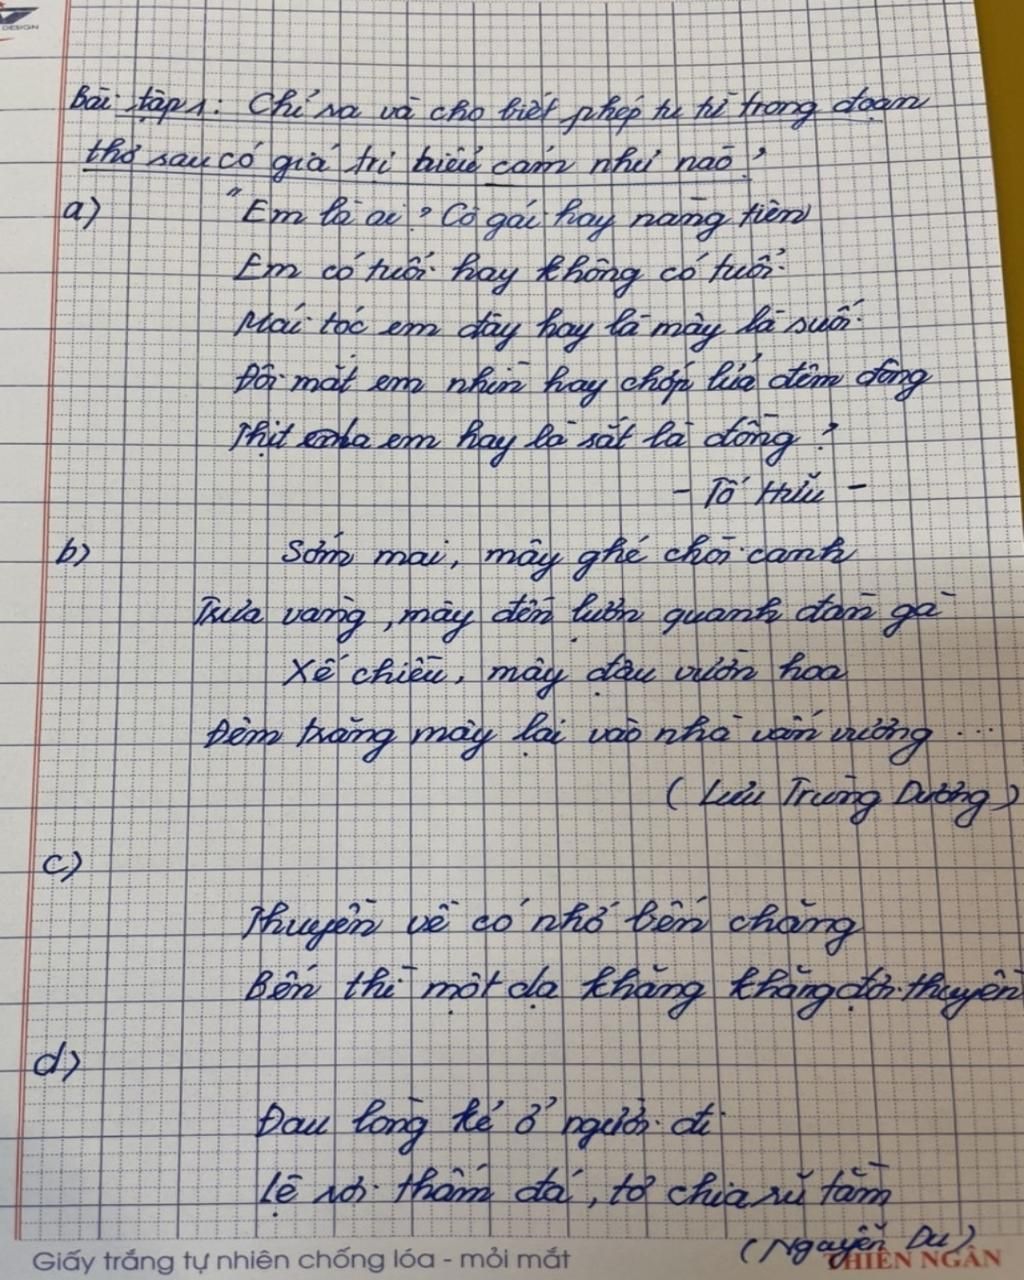 DESIGN
Bài tập 1: Chỉ ra và cho biết phép tu từ trong đoạn
thơ sau có giá trị biểu cảm như nào?
a) "Em là ai? Cô gái hay nàng tiên
Em có tuổi hay không có tuổi
Mái tóc em đây hay là mây là suối
Đôi mắt em nhìn hay chớp lửa đêm đông
Thịt da em hay là sắt là đồng?
- Tố Hữu -
b) Sớm mai, mây ghé chơi canh
Trưa vàng, mây đến lượn quanh đàn gà
Xế chiều, mây đậu vườn hoa
Đêm trăng mây lại vào nhà vấn vương ...
(Lưu Trùng Dương)
c)
Thuyền về có nhớ bến chăng
Bến thì một dạ khăng khăng đợi thuyền
d)
Đau lòng kẻ ở người đi
Lệ rơi thấm đá, tơ chia rũ tằm
(Nguyễn Du)
Giấy trắng tự nhiên chống lóa - mỏi mắt THIÊN NGÂN